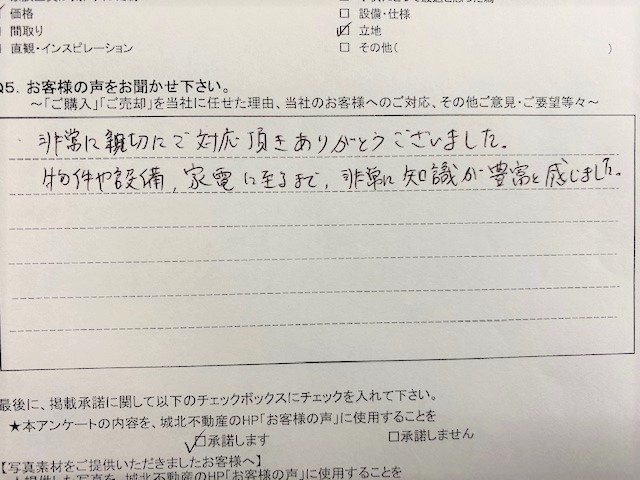 価格
□ 設備・仕様
間取り
☑ 立地
直観・インスピレーション
□ その他( )
Q5. お客様の声をお聞かせ下さい。
～「ご購入」「ご売却」を当社に任せた理由、当社のお客様へのご対応、その他ご意見・ご要望等々～
非常に親切にご対応頂きありがとうございました。
物件や設備,家電に至るまで,非常に知識が豊富と感じました。
最後に、掲載承諾に関して以下のチェックボックスにチェックを入れて下さい。
★本アンケートの内容を、城北不動産のHP「お客様の声」に使用することを
☑承諾します □承諾しません
【写真素材をご提供いただきましたお客様へ】
提供した写真を、城北不動産のHP「お客様の声」に使用することを